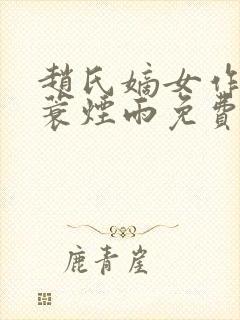 趙氏嫡女作
蓑煙雨免費
鹿青崖